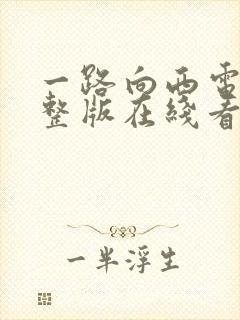 一路向西電
整版在綫看
一半浮生